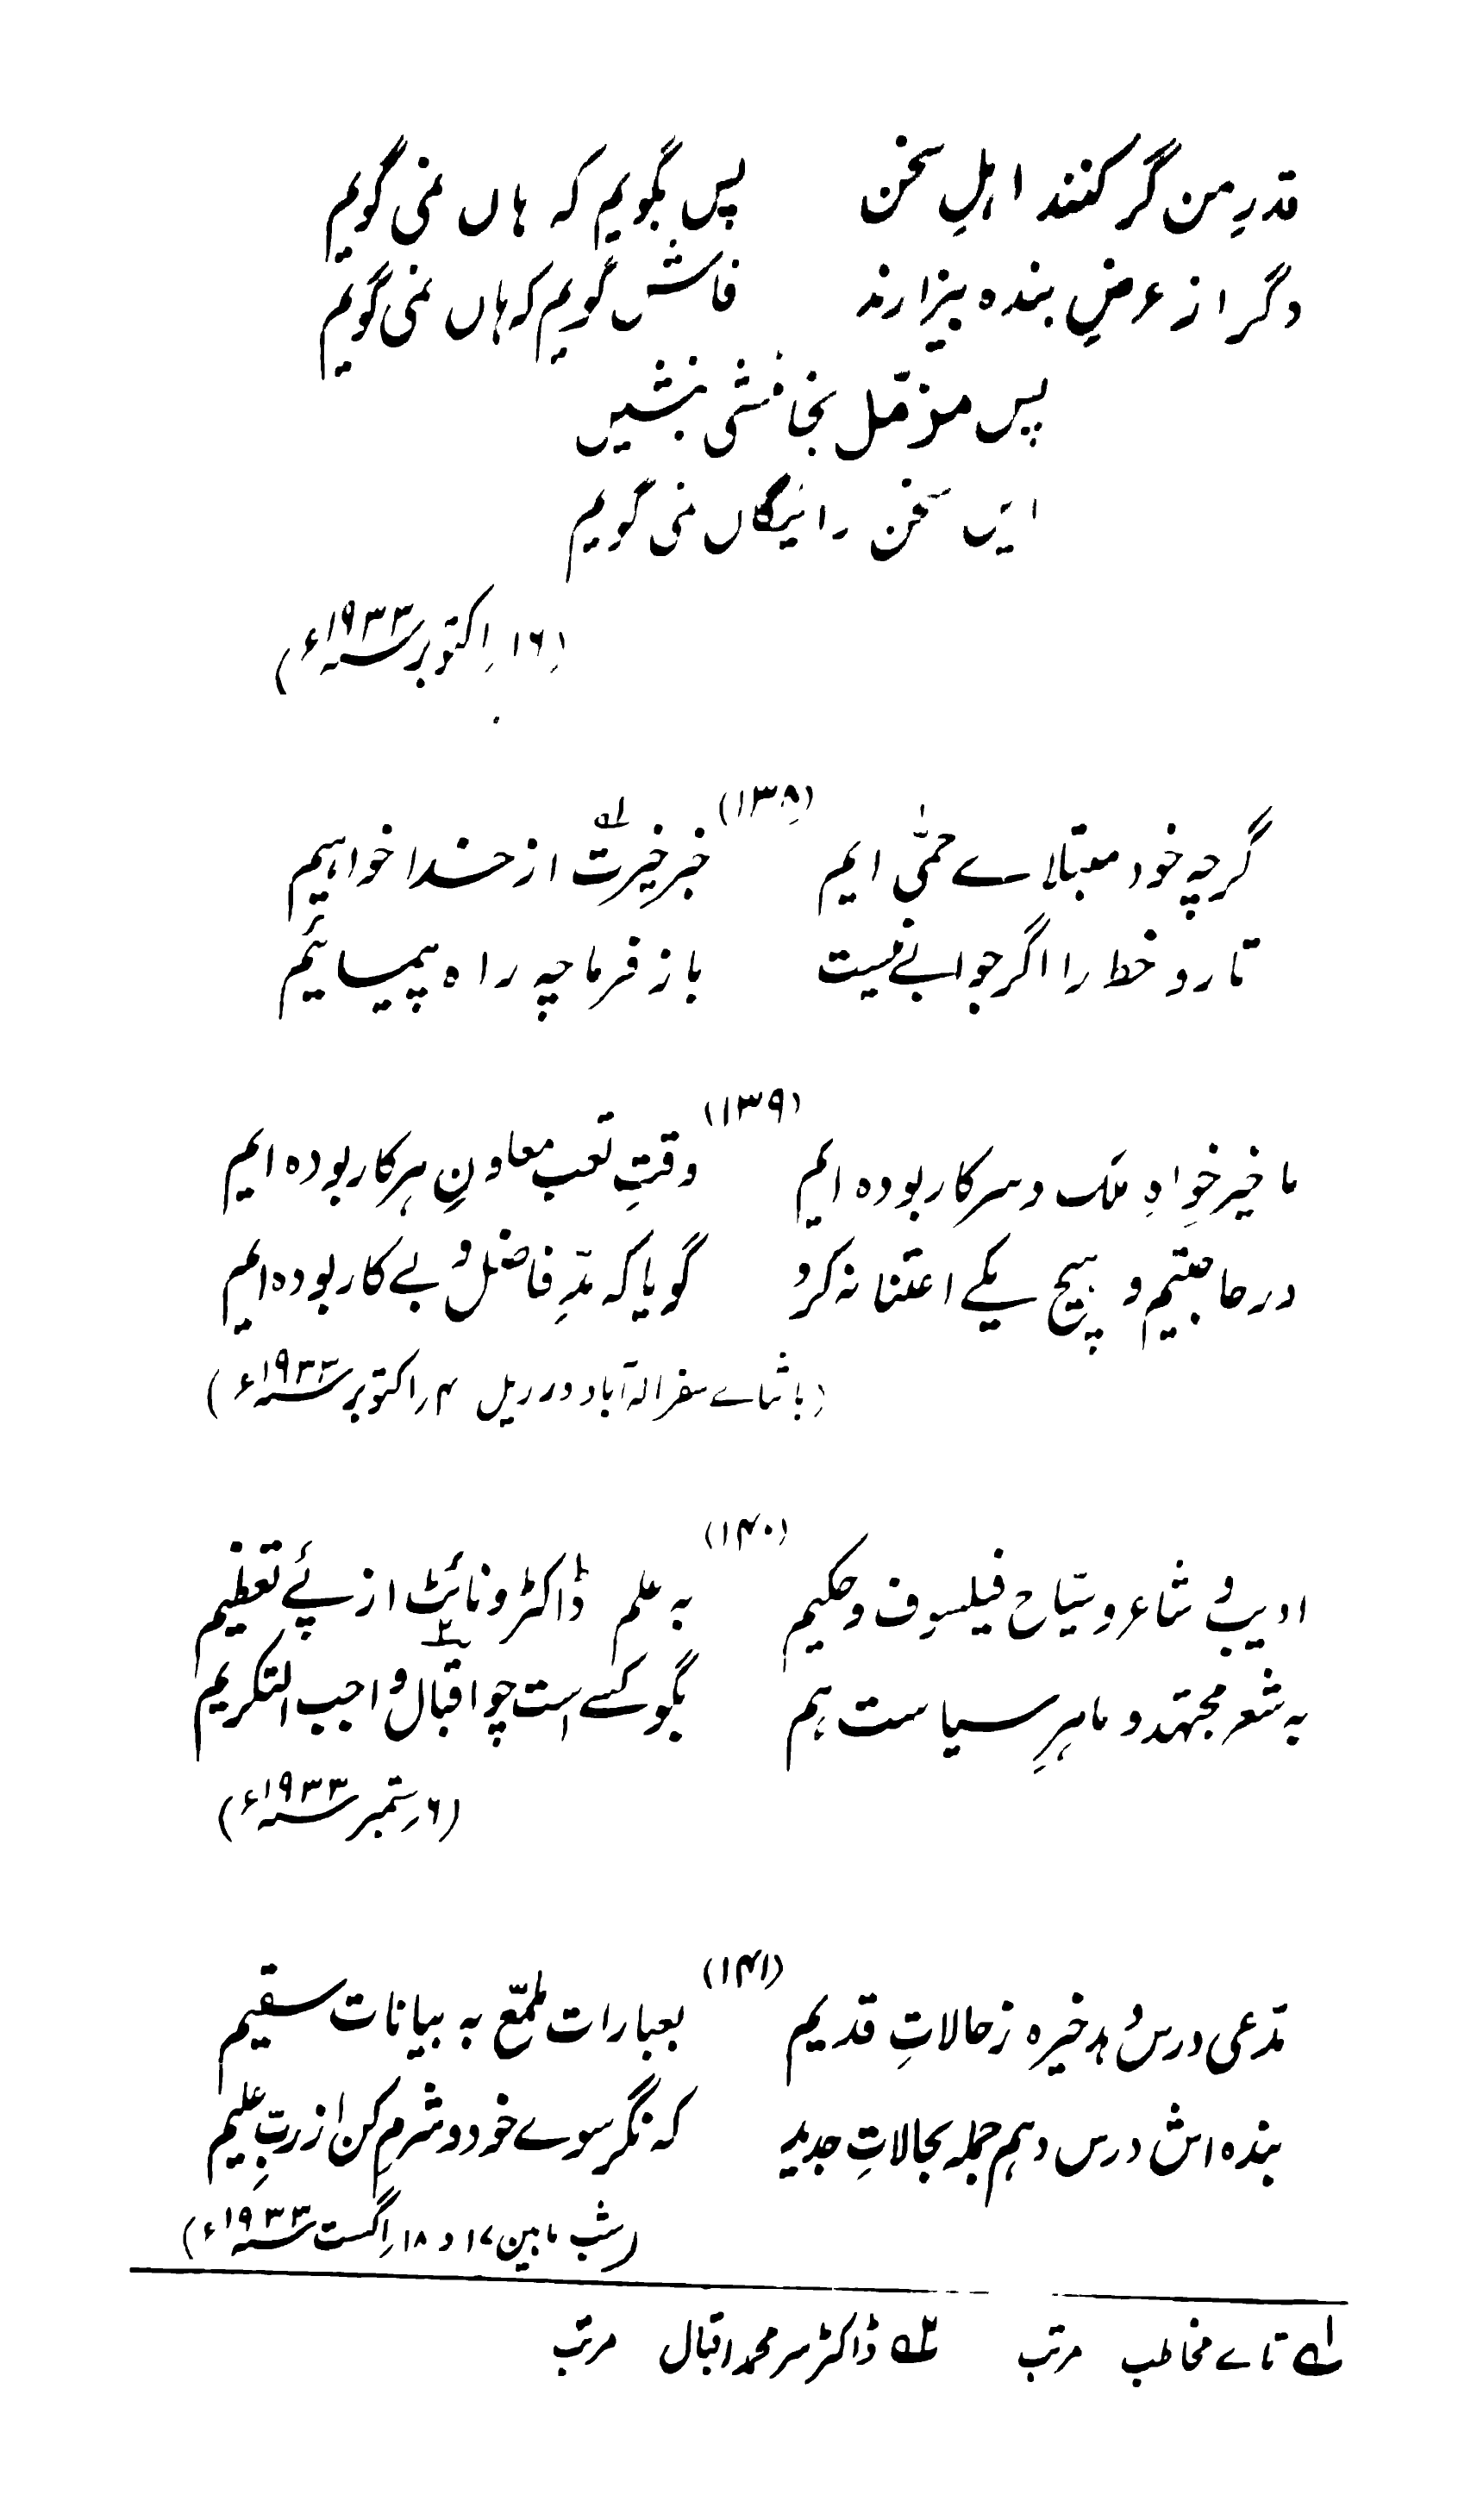 قدرِ من گر کنند اہلِ سخن پس بگویم کہ ہاں نمی گویم
دگر از عرضِ بندہ بیزارند فاش گویم کہ ہاں نمی گویم
پس مزمّل بخامشی بنشیں
ایں سخن رائیگاں نمی گویم
(۱۶ اکتوبر ۱۹۳۳ء)
(۱۳۸)
گرچہ خود مبتلاے حمّیٰ ایم خبرِ خیرتؔ از خدا خواہیم
تار و خط را اگر جوابے نیست باز فرما چہ راہ پیمائیم
(۱۳۹)
ما خیر خواہِ ملک و سرکار بودہ ایم وقتِ تعب معاونِ ہر کار بودہ ایم
در حاجتیم و ہیچ یکے اعتنا نہ کرد گویا کہ مدِّ فاضل و بے کار بودہ ایم
(باثناے سفر الہ آباد در ریل ۴ اکتوبر ۱۹۳۳ء)
(۱۴۰)
ادیب و شاعر و سیّاح فیلسوف و حکیم بہ علم ڈاکٹر و نائٹ از پئے تعظیم
بہ شعر مجتہد و ماہرِ سیاست ہم بگو کسے است چو اقبال و واجب التکریم
(۶ ستمبر ۱۹۳۳ء)
(۱۴۱)
مدعی درس دہد خیرہ ز حالاتِ قدیم بعبارات ملمّع بہ بیانات سقیم
بندہ اش درس دہم جملہ بحالاتِ جدید کہ نگر سوے خود و شرم کن از ربِّ علیم
(شب مابین ۱۷ و ۱۸ اگست ۱۹۳۳ء)
؎۱ تاے مخاطب مرتب ؎۲ ڈاکٹر سر محمد اقبال مرتب